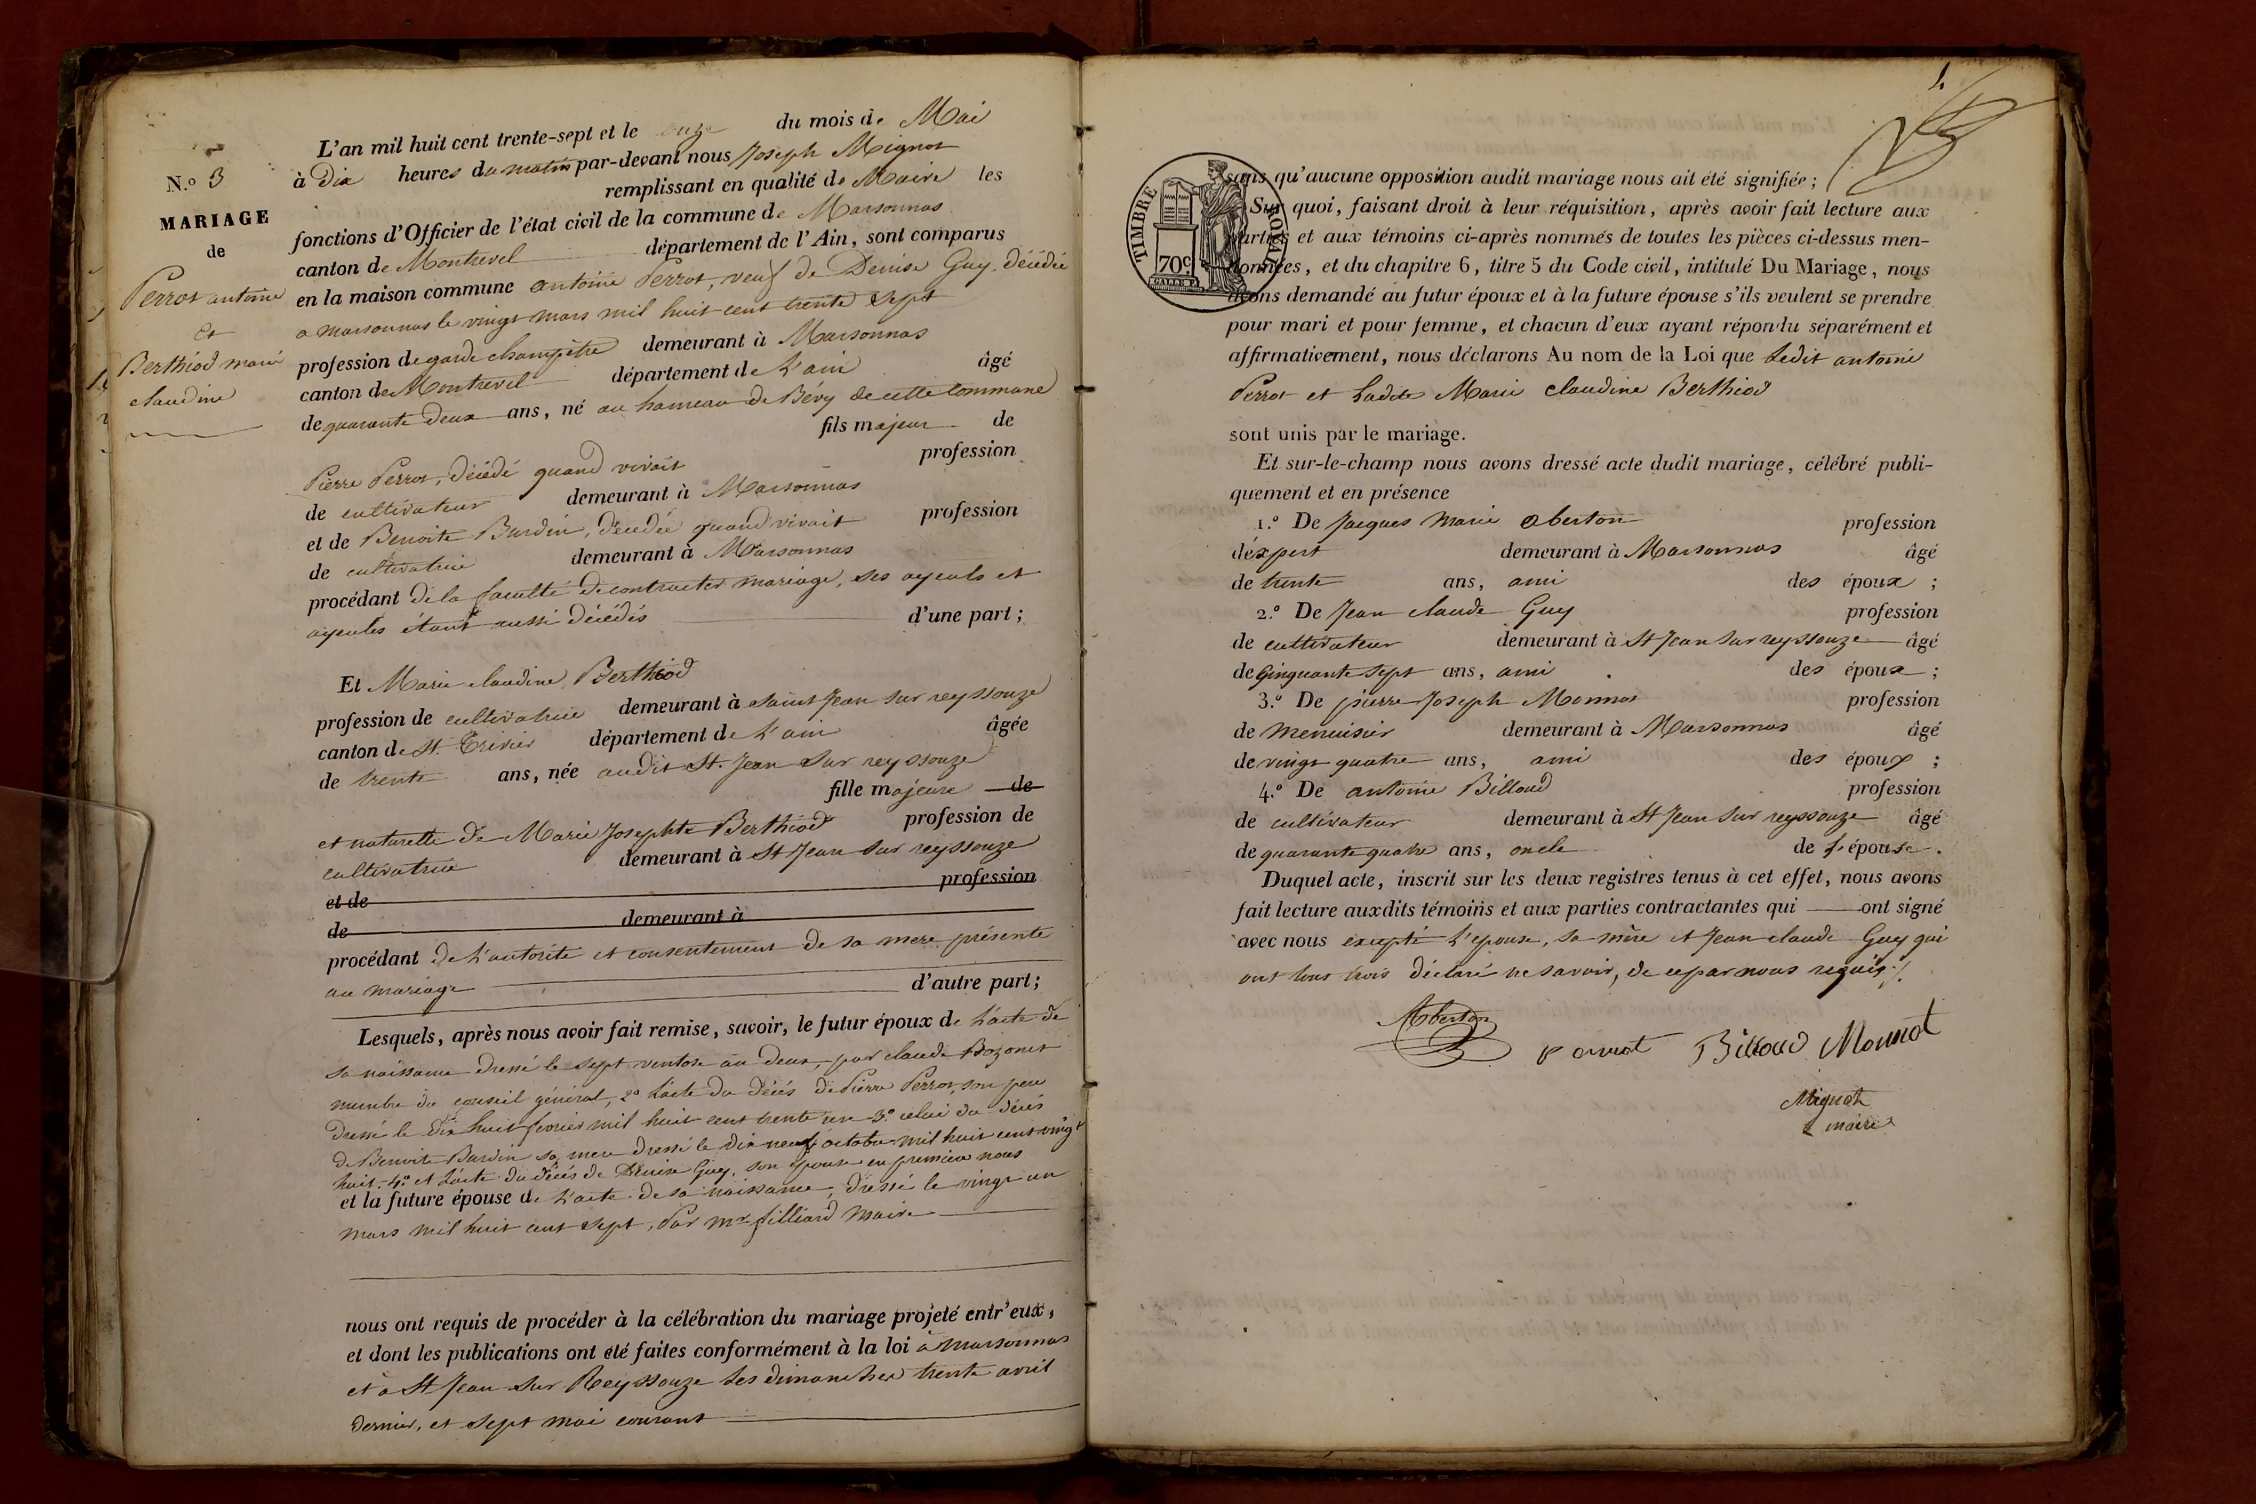 N.º 3
MARIAGE
de
Perrot antoine
et
Berthiod marie
claudine
L'an mil huit cent trente-sept et le onze du mois de Mai
à dix heures du matin par-devant nous Joseph Mignot
remplissant en qualité de Maire les
fonctions d'Officier de l'état civil de la commune de Marsonnas
canton de Montrevel département de l'Ain, sont comparus
en la maison commune antoine Perrot, veuf de Denise Guy décédée
a marsonnas le vingt mars mil huit cent trente sept
profession de garde champêtre demeurant à Marsonnas
canton de Montrevel département de L'ain âgé
de quarante deux ans, né au hameau de Bévy de cette commune
fils majeur de
Pierre Perrot, décédé quand vivait profession
de cultivateur demeurant à Marsonnas
et de Benoite Burdin, décédée quand vivait profession
de cultivatrice demeurant à Marsonnas
procédant de la faculté de contracter mariage, ses ayeuls et
ayeules étant aussi décédés d'une part;
Et Marie claudine Berthiod
profession de cultivatrice demeurant à saint Jean sur reyssouze
canton de St. Trivier département de L'ain âgée
de trente ans, née audit St. Jean sur reyssouze
fille majeure de
et naturelle de Marie Josephte Berthiod profession de
cultivatrice demeurant à St Jean sur reyssouze
et de profession
de demeurant à
procédant de L'autorité et consentement de sa mere présente
au mariage d'autre part;
Lesquels, après nous avoir fait remise, savoir, le futur époux de L'acte de
sa naissance dressé le sept ventose an deux, par claude Bozonet
membre du conseil général, 2º L'acte du décés de Pierre Perrot, son pere
dressé le dix huit fevrier mil huit cent trente un 3º celui du décés
de Benoite Burdin sa mere dressé le dix neuf octobre mil huit cent vingt
huit. 4º et L'acte du décés de Denise Guy, son épouse en premiere noces
et la future épouse de L'acte de sa naissance, dressé le vingt un
mars mil huit cent sept, Par mr filliard maire
nous ont requis de procéder à la célébration du mariage projeté entr'eux,
et dont les publications ont été faites conformément à la loi à marsonnas
et à St Jean sur Reyssouze les dimanches trente avril
dernier, et sept mai courant
1.
TIMBRE ROYAL
70c
sans qu'aucune opposition audit mariage nous ait été signifiée;
Sur quoi, faisant droit à leur réquisition, après avoir fait lecture aux
parties et aux témoins ci-après nommés de toutes les pièces ci-dessus men-
tionnées, et du chapitre 6, titre 5 du Code civil, intitulé Du Mariage, nous
avons demandé au futur époux et à la future épouse s'ils veulent se prendre
pour mari et pour femme, et chacun d'eux ayant répondu séparément et
affirmativement, nous déclarons Au nom de la Loi que Ledit antoine
Perrot et Ladite Marie claudine Berthiod
sont unis par le mariage.
Et sur-le-champ nous avons dressé acte dudit mariage, célébré publi-
quement et en présence
1.º De Jacques Marie Oberton profession
d'éxpert demeurant à Marsonnas âgé
de trente ans, ami des époux ;
2.º De Jean claude Guy profession
de cultivateur demeurant à St Jean sur reyssouze âgé
de Cinquante sept ans, ami des époux ;
3.º De pierre Joseph Monnot profession
de menuisier demeurant à Marsonnas âgé
de vingt quatre ans, ami des époux ;
4.º De antoine Billoud profession
de cultivateur demeurant à St Jean sur reyssouze âgé
de quarante quatre ans, oncle de L'épouse.
Duquel acte, inscrit sur les deux registres tenus à cet effet, nous avons
fait lecture auxdits témoins et aux parties contractantes qui ont signé
avec nous excepté L'epouse, sa mère et Jean claude Guy qui
ont tous trois déclaré ne savoir, de ce par nous requis./.
Oberton
Perrot Billoud Monnot
Mignot
maire